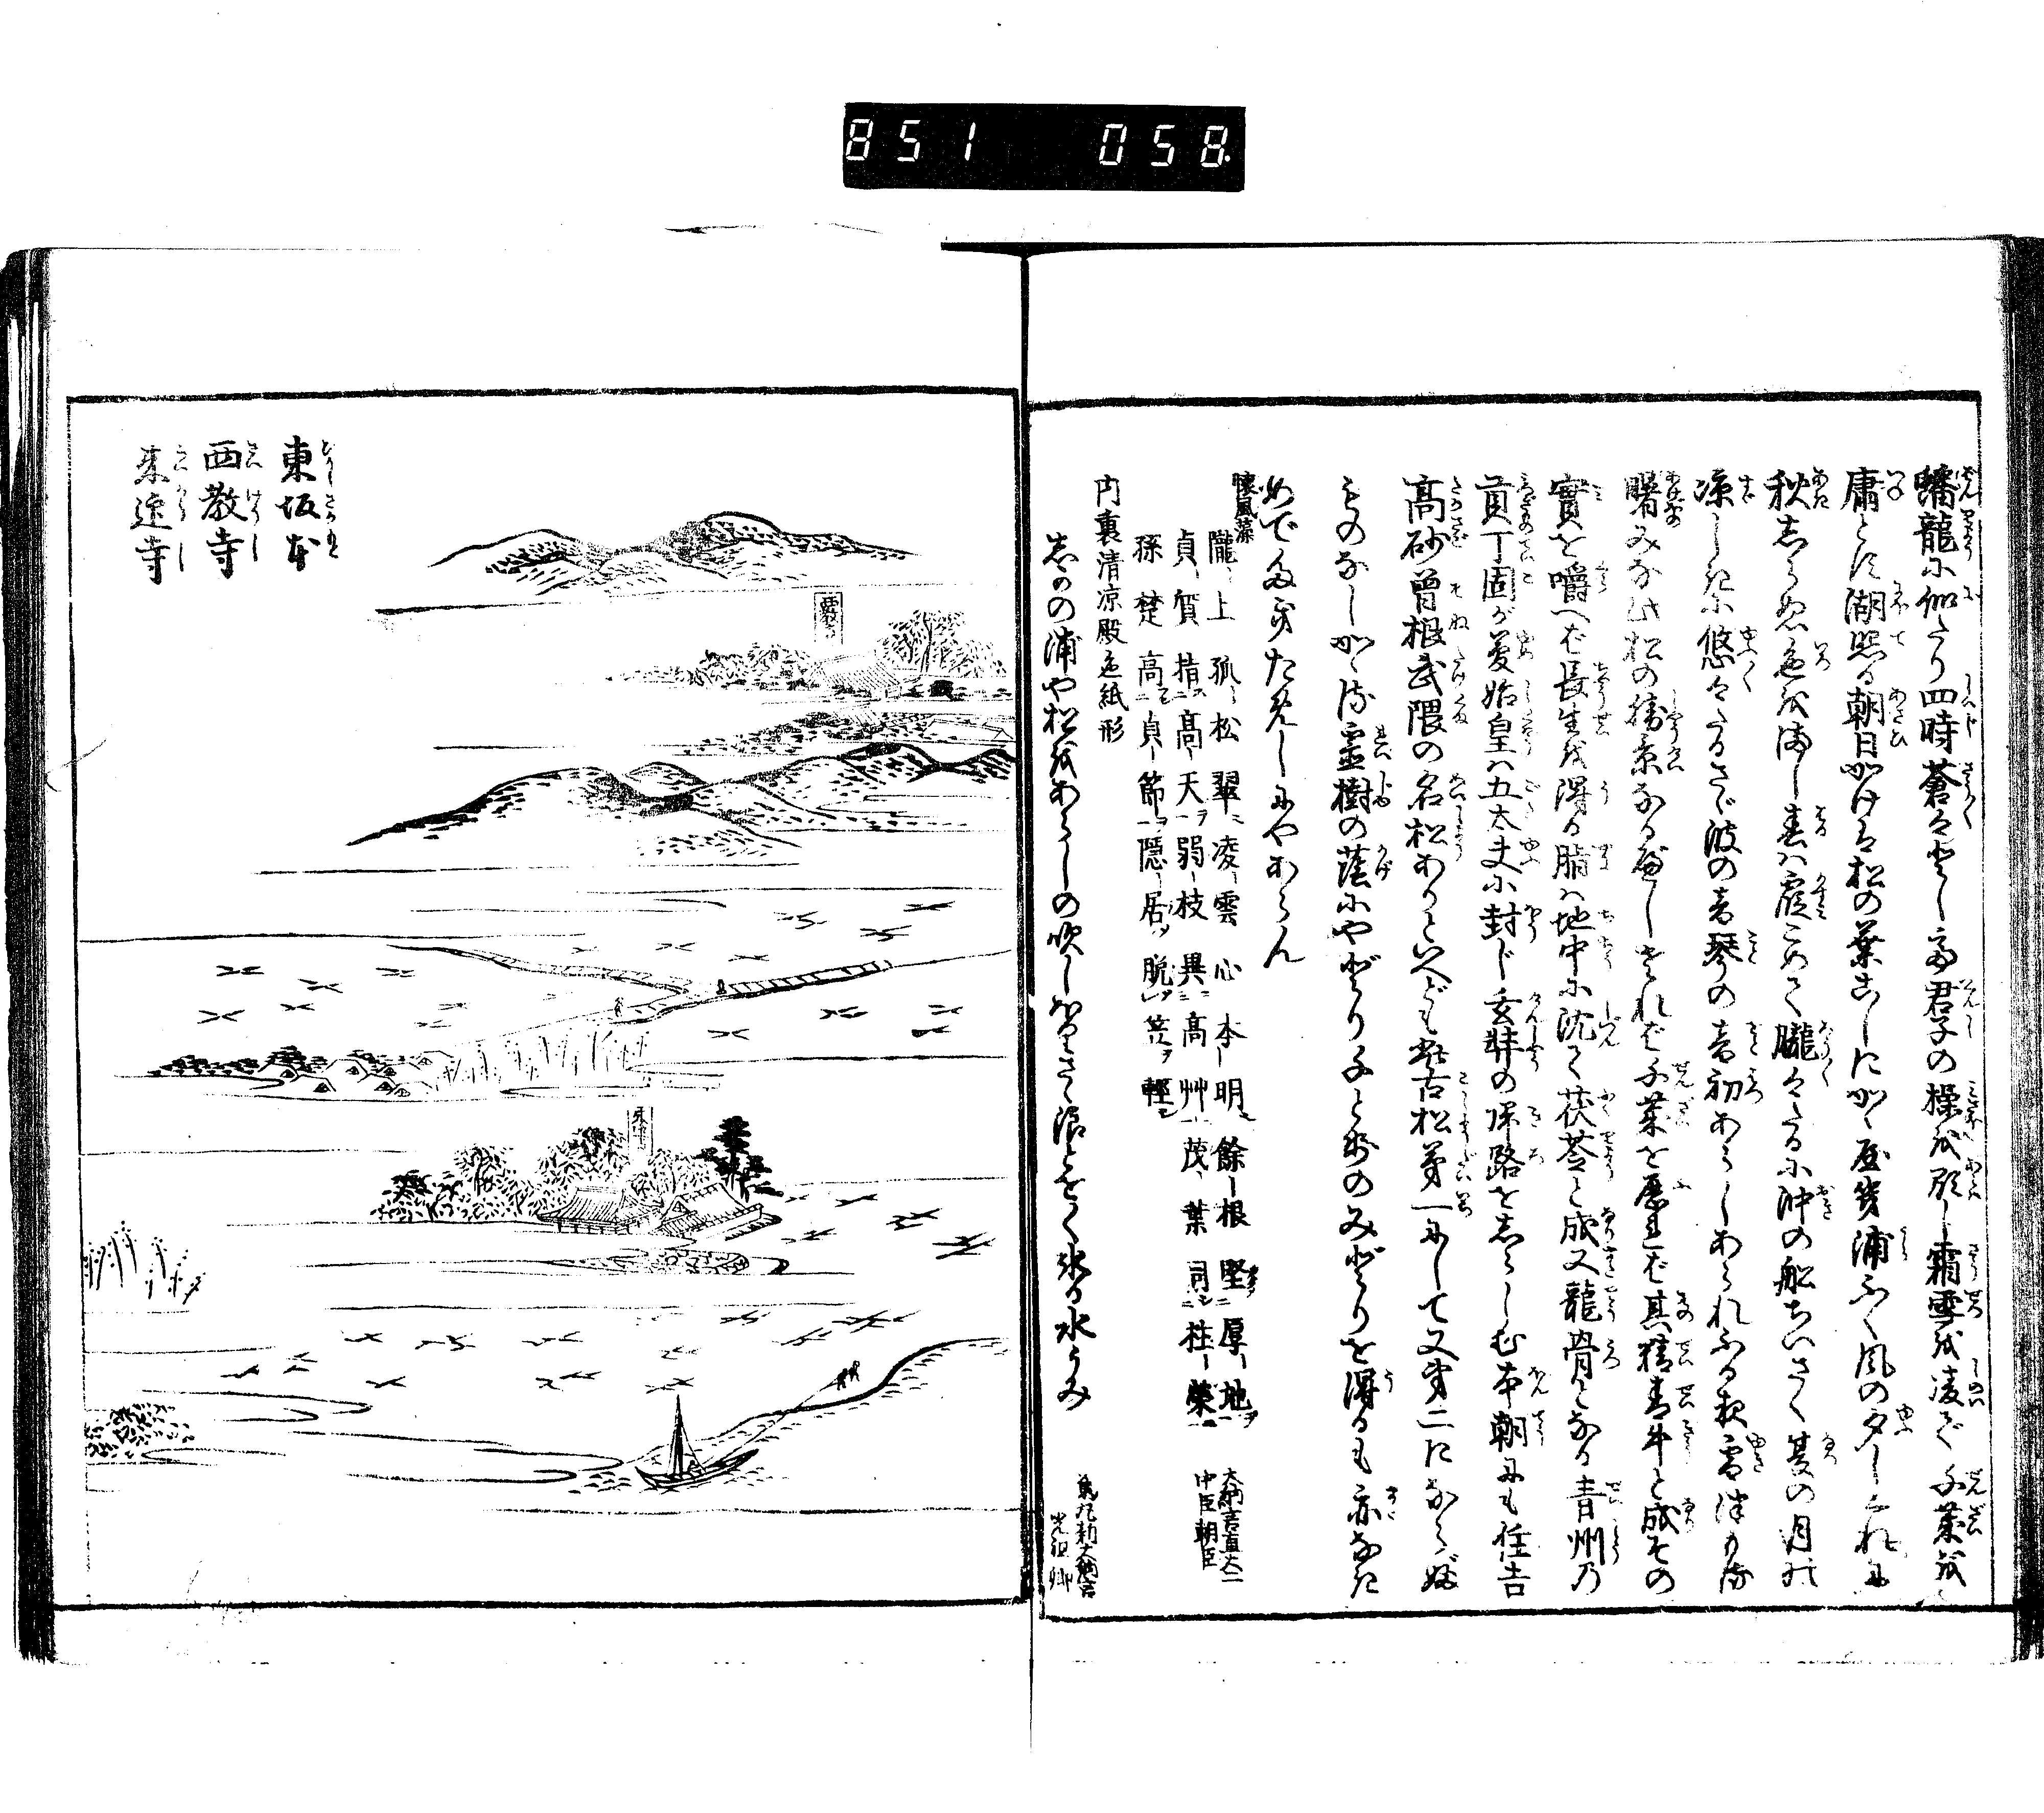 851 058
蟠龍に似たり四時蒼々として君子の操を顕し霜雪を凌ぎ千葉を
庸とに湖照る朝日かげは松の葉ごしにかゝ
秋しらぬ色を満し春は霞こめて朧々たるに沖の船ちいさく夏の月は
凉しきに悠々たるさゞ波の音琴の音初あらしあられふる秋雪
曙みな此松の勝景なるべしされば千葉を歴れば其精青牛と成その
實を嚼へば長生を得る脂は地中に沈て茯苓と成又龍骨となる青州乃
貢丁固が夢始皇は五大夫に封じ玄弉の帰路をしらしむ本朝にも住吉
高砂曽根武隈の名松ありといへども古松第一にして又第二にならぶ
ものなしかゝる霊樹の蔭にやどり千とせのみどりを得るも亦なに
めでたきためしにやあらん
懐風藻
隴上孤松翠凌雲心本明餘根堅厚地
貞質指高天弱枝異高艸茂葉同桂榮
孫楚高貞節隠居脱笠輕
大納言直大二
中臣朝臣
内裏清凉殿色紙形
志がの浦や松をあらしの吹しほりさゝ浪とをく氷る水うみ
烏丸前大納言
光祖卿
東坂本
西教寺
来迎寺
西教寺
来迎寺